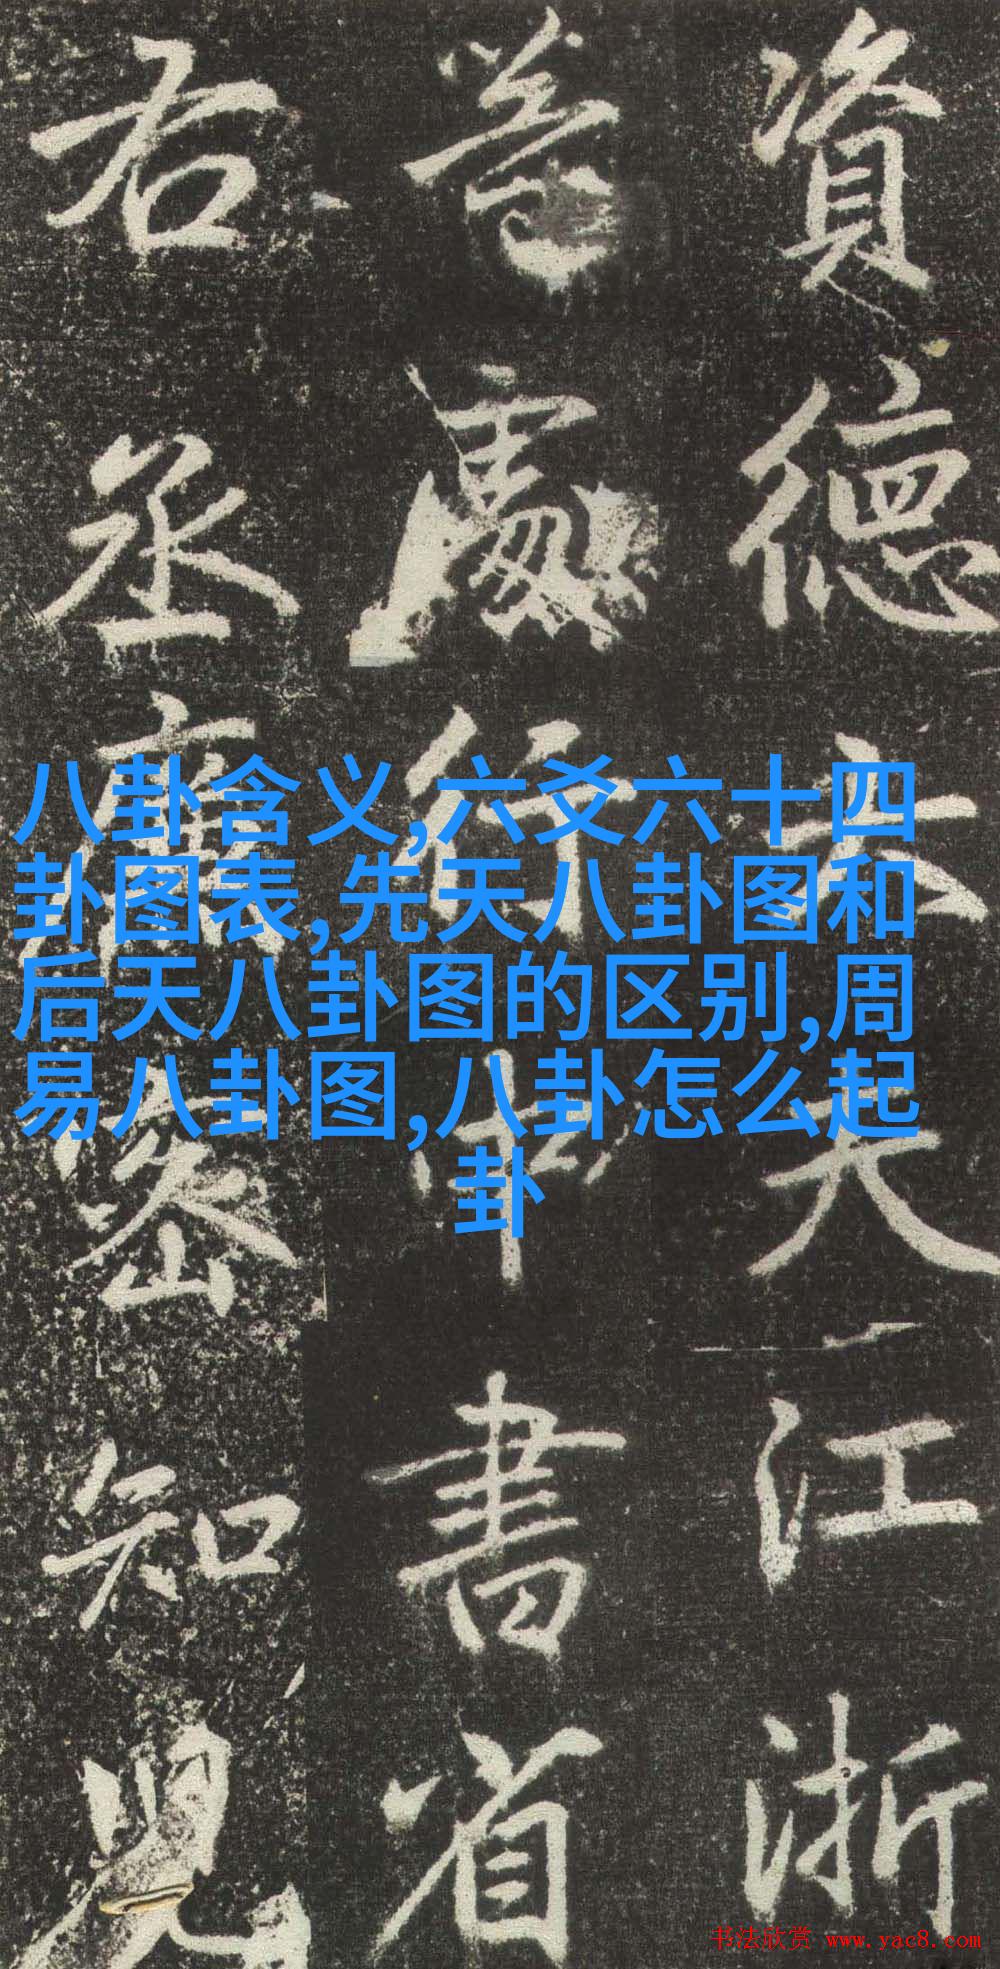 資德大夫江浙
等處行中書省
右丞廉密知兒
八卦含义,六爻六十四
卦图表,先天八卦图和
后天八卦图的区别,周
易八卦图,八卦怎么起
卦
书法欣赏 www.yac8.com